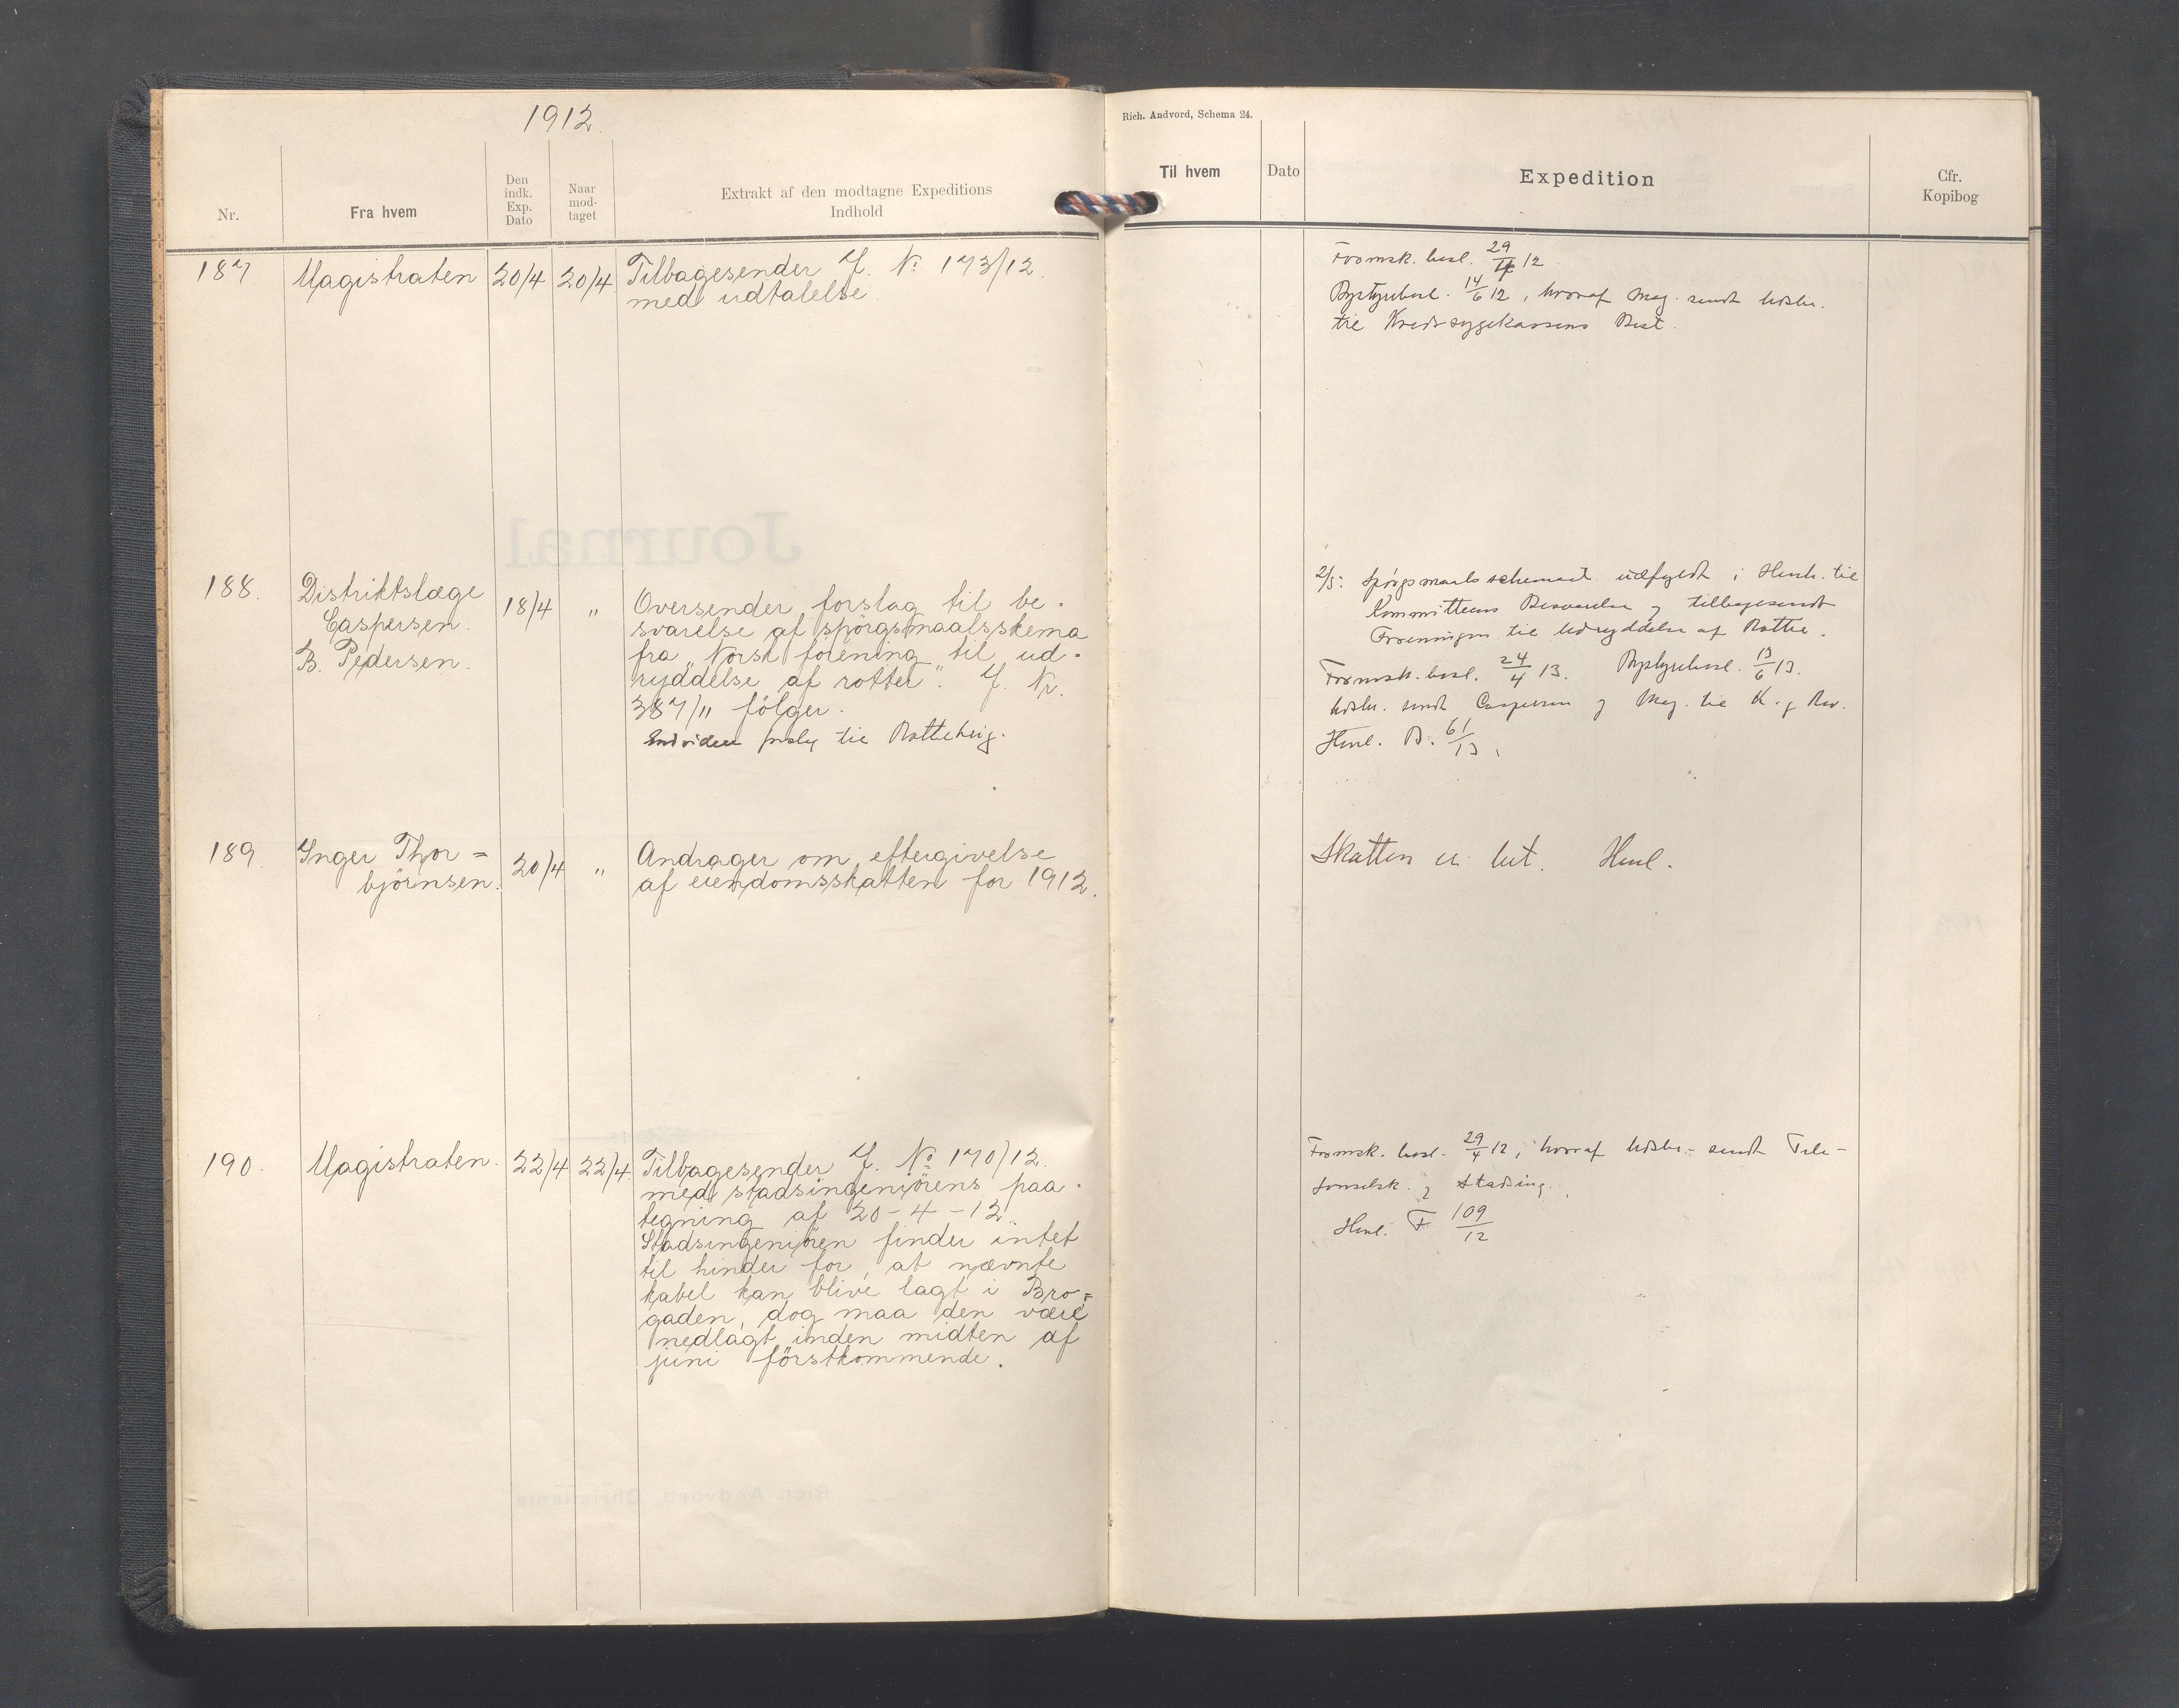 1912.
Nr.
Fra hvem
Den
indk.
Exp.
Dato
Naar
mod-
taget
Extrakt af den modtagne Expeditions
Indhold
187.
Magistraten
20/4
20/4
Tilbagesender J. No 173/12.
med udtalelse
188.
Distriktslæge
Caspersen.
B. Pedersen.
18/4
"
Oversender forslag til be-
svarelse af spörgsmaalsskema
fra "Norsk forening til ud-
ryddelse af rotter". J. Nr.
387/11 fölger.
Endvidere til
189.
Inger Thor=
björnsen.
20/4
"
Andrager om eftergivelse
af eiendomsskatten for 1912.
190.
Magistraten.
22/4
22/4
Tilbagesender J. No 170/12.
med stadsingeniörens paa-
tegning af 20-4-12.
Stadsingeniören finder intet
til hinder for, at nævnte
kabel kan blive lagt i Bro=
gaden, dog maa den være
nedlagt inden midten af
juni förstkommende.
Journal
Rich. Andvord, Christiania
Rich. Andvord, Schema 24.
Til hvem
Dato
Expedition
Cfr.
Kopibog
Formsk. besl. 29/4 12
Bystyrbesl. 14/6 12, hvoraf Mag. sendt Udskr.
til Kredssygekassens Best.
2/5: Spörgsmaalsschemaet udfyldt i Henh. til
Kommitteens Besvarelse og tilbagesendt
Foreningen til Udryddelse af Rotter.
Formsk. besl. 24/4 13. Bystyrbesl. 13/6 13.
Udskr. sendt Caspersen og Mag. til K. og Rev.
Henl. B. 61/13.
Skatten er bet. Henl.
Formsk. besl. 29/4 12, hvoraf Udskr. sendt Tele-
fonselsk. og Stadsing.
Henl. F 109/12